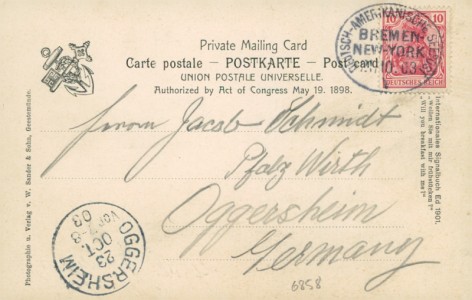 Private Mailing Card
Carte postale — POSTKARTE — Post card
UNION POSTALE UNIVERSELLE.
Authorized by Act of Congress May 19. 1898.
10 10
DEUTSCHES REICH
BREMEN-
NEW-YORK
Herrn Jacob Schmidt
Pfalz Wirth
Oggersheim
Germany
6858
OGGERSHEIM
23
OCT.
03
Photographie u. Verlag v. W. Sander & Sohn, Geestemünde.
Internationales Signalbuch Ed 1901.
Will you breakfast with me?"